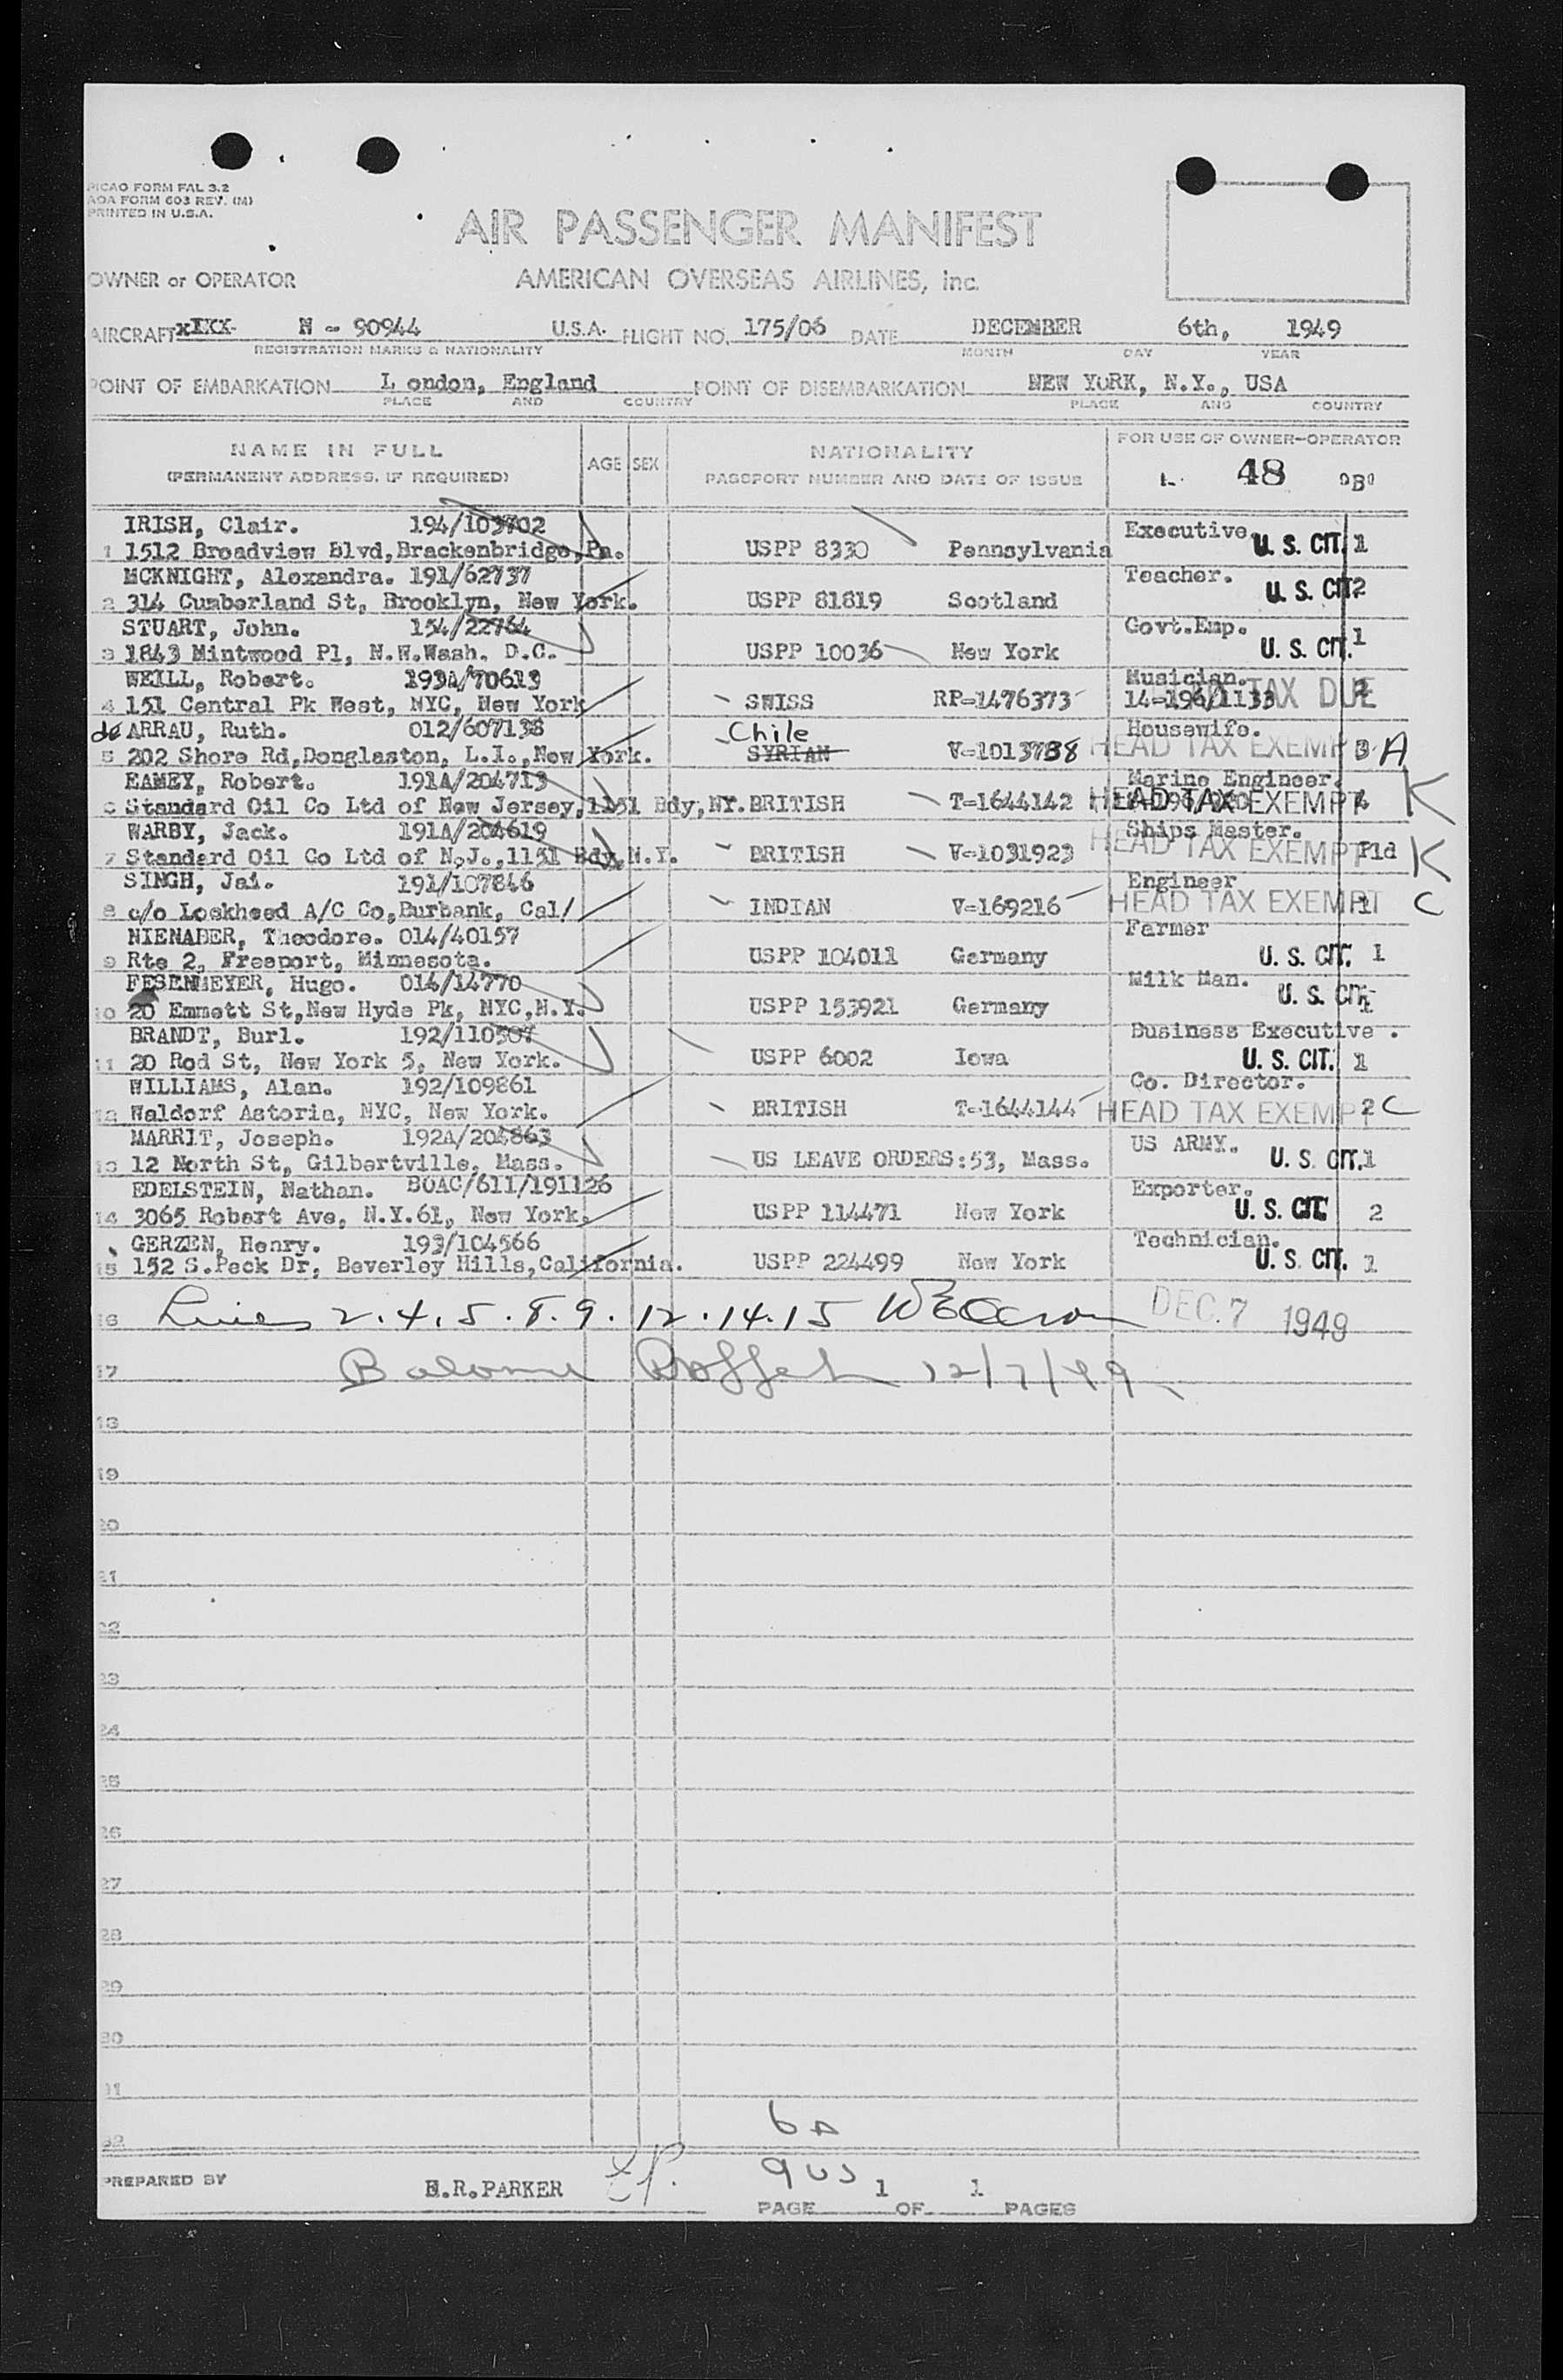 PICAO FORM FAL 3.2
AOA FORM 603 REV. (M)
PRINTED IN U.S.A.
AIR PASSENGER MANIFEST
OWNER or OPERATOR AMERICAN OVERSEAS AIRLINES, inc.
AIRCRAFT xXXX- N - 90944 U.S.A. FLIGHT NO. 175/06 DATE DECEMBER 6th, 1949
REGISTRATION MARKS & NATIONALITY MONTH DAY YEAR
POINT OF EMBARKATION L ondon, England POINT OF DISEMBARKATION NEW YORK, N.Y., USA
PLACE AND COUNTRY PLACE AND COUNTRY
NAME IN FULL AGE SEX NATIONALITY FOR USE OF OWNER-OPERATOR
(PERMANENT ADDRESS, IF REQUIRED) PASSPORT NUMBER AND DATE OF ISSUE 48 "B"
IRISH, Clair. 194/103702 Executive.
1 1512 Broadview Blvd,Brackenbridge,Pa. USPP 8330 Pennsylvania U. S. CIT. 1
MCKNIGHT, Alexandra. 191/62737 Teacher.
2 314 Cumberland St, Brooklyn, New York. USPP 81819 Scotland U. S. CIT 2
STUART, John. 154/22764 Govt.Emp.
3 1843 Mintwood Pl, N.W.Wash. D.C. USPP 10036 New York U. S. CIT. 1
WEILL, Robert. 193A/70613 Musician.
4 151 Central Pk West, NYC, New York SWISS RP-1476373 14-196/1133 TAX DUE 2
de ARRAU, Ruth. 012/607138 Chile Housewife.
5 202 Shore Rd,Donglaston, L.I.,New York. SYRIAN V-1013788 HEAD TAX EXEMPT 3 A
EAMEY, Robert. 191A/204713 Marine Engineer.
6 Standard Oil Co Ltd of New Jersey,1151 Bdy,NY. BRITISH T-1644142 HEAD TAX EXEMPT 4 K
WARBY, Jack. 191A/204619 Ships Master.
7 Standard Oil Co Ltd of N.J.,1151 Bdy,N.Y. BRITISH V-1031923 HEAD TAX EXEMPT P1d K
SINGH, Jai. 191/107846 Engineer
8 c/o Loskheed A/C Co,Burbank, Cal/ INDIAN V-169216 HEAD TAX EXEMPT 1 C
NIENABER, Theodore. 014/40157 Farmer
9 Rte 2, Freeport, Minnesota. USPP 104011 Germany U. S. CIT. 1
FESENMEYER, Hugo. 014/14770 Milk Man.
10 20 Emmett St,New Hyde Pk, NYC,N.Y. USPP 153921 Germany U. S. CIT. 1
BRANDT, Burl. 192/110507 Business Executive .
11 20 Rod St, New York 5, New York. USPP 6002 Iowa U. S. CIT. 1
WILLIAMS, Alan. 192/109861 Co. Director.
12 Waldorf Astoria, NYC, New York. BRITISH T-1644144 HEAD TAX EXEMPT 2 C
MARRIT, Joseph. 192A/204863 US ARMY.
13 12 North St, Gilbertville, Mass. US LEAVE ORDERS:53, Mass. U. S. CIT. 1
EDELSTEIN, Nathan. BOAC/611/191126 Exporter.
14 3065 Robert Ave, N.Y.61, New York. USPP 114471 New York U. S. CIT. 2
GERZEN, Henry. 193/104566 Technician.
15 152 S.Peck Dr, Beverley Hills,California. USPP 224499 New York U. S. CIT. 1
16 Lines 2.4.5.8.9.12.14.15 DEC. 7 1949
17 12/7/49
18
19
20
21
22
23
24
25
26
27
28
29
30
31
32
6A
PREPARED BY E.R.PARKER 9US
PAGE 1 OF 1 PAGES